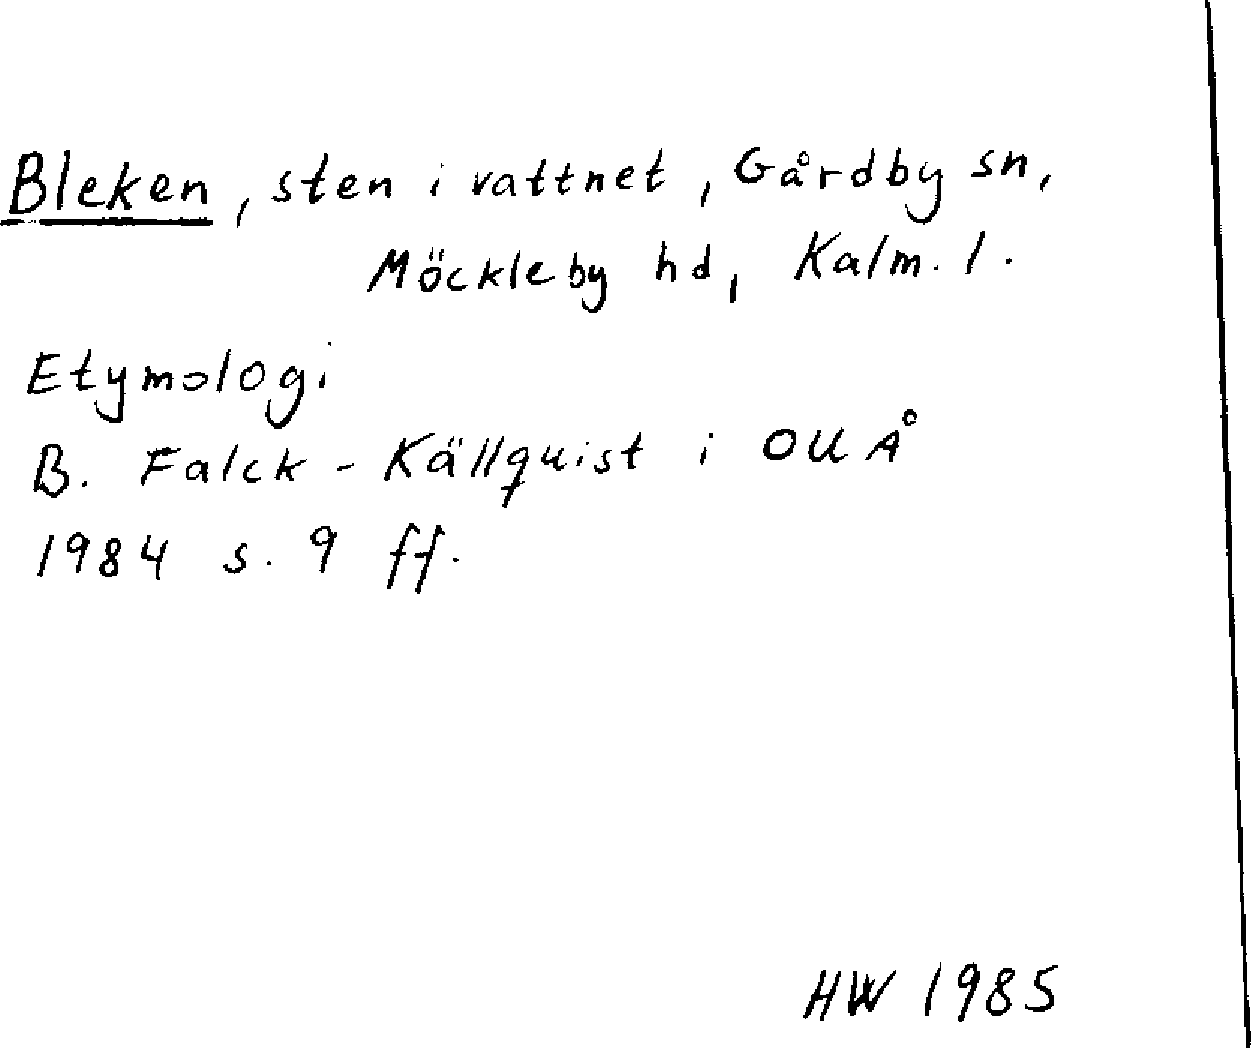 Bleken, sten i vattnet, Gårdby sn,
Möckleby hd, Kalm. l.
Etymologi
B. Falck-Källquist i OUÅ
1984 s. 9 ff.
HW 1985